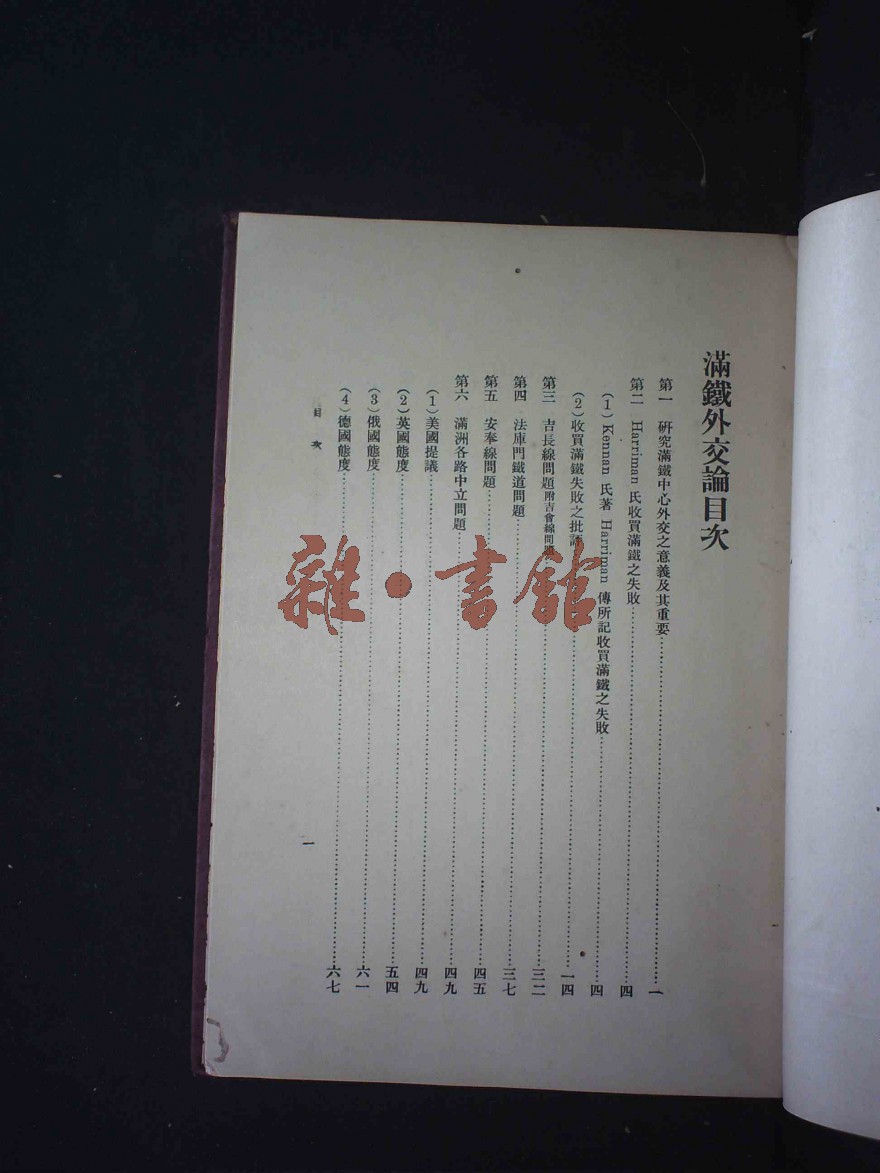 滿鐵外交論目次
第一 硏究滿鐵中心外交之意義及其重要……一
第二 Harriman 氏收買滿鐵之失敗……四
(1) Kennan 氏著 Harriman 傳所記收買滿鐵之失敗……四
(2) 收買滿鐵失敗之批評……一四
第三 吉長線問題附吉會線問題……三二
第四 法庫門鐵道問題……三七
第五 安奉線問題……四五
第六 滿洲各路中立問題……四九
(1) 美國提議……四九
(2) 英國態度……五四
(3) 俄國態度……六一
(4) 德國態度……六七
目次
一
雜·書館